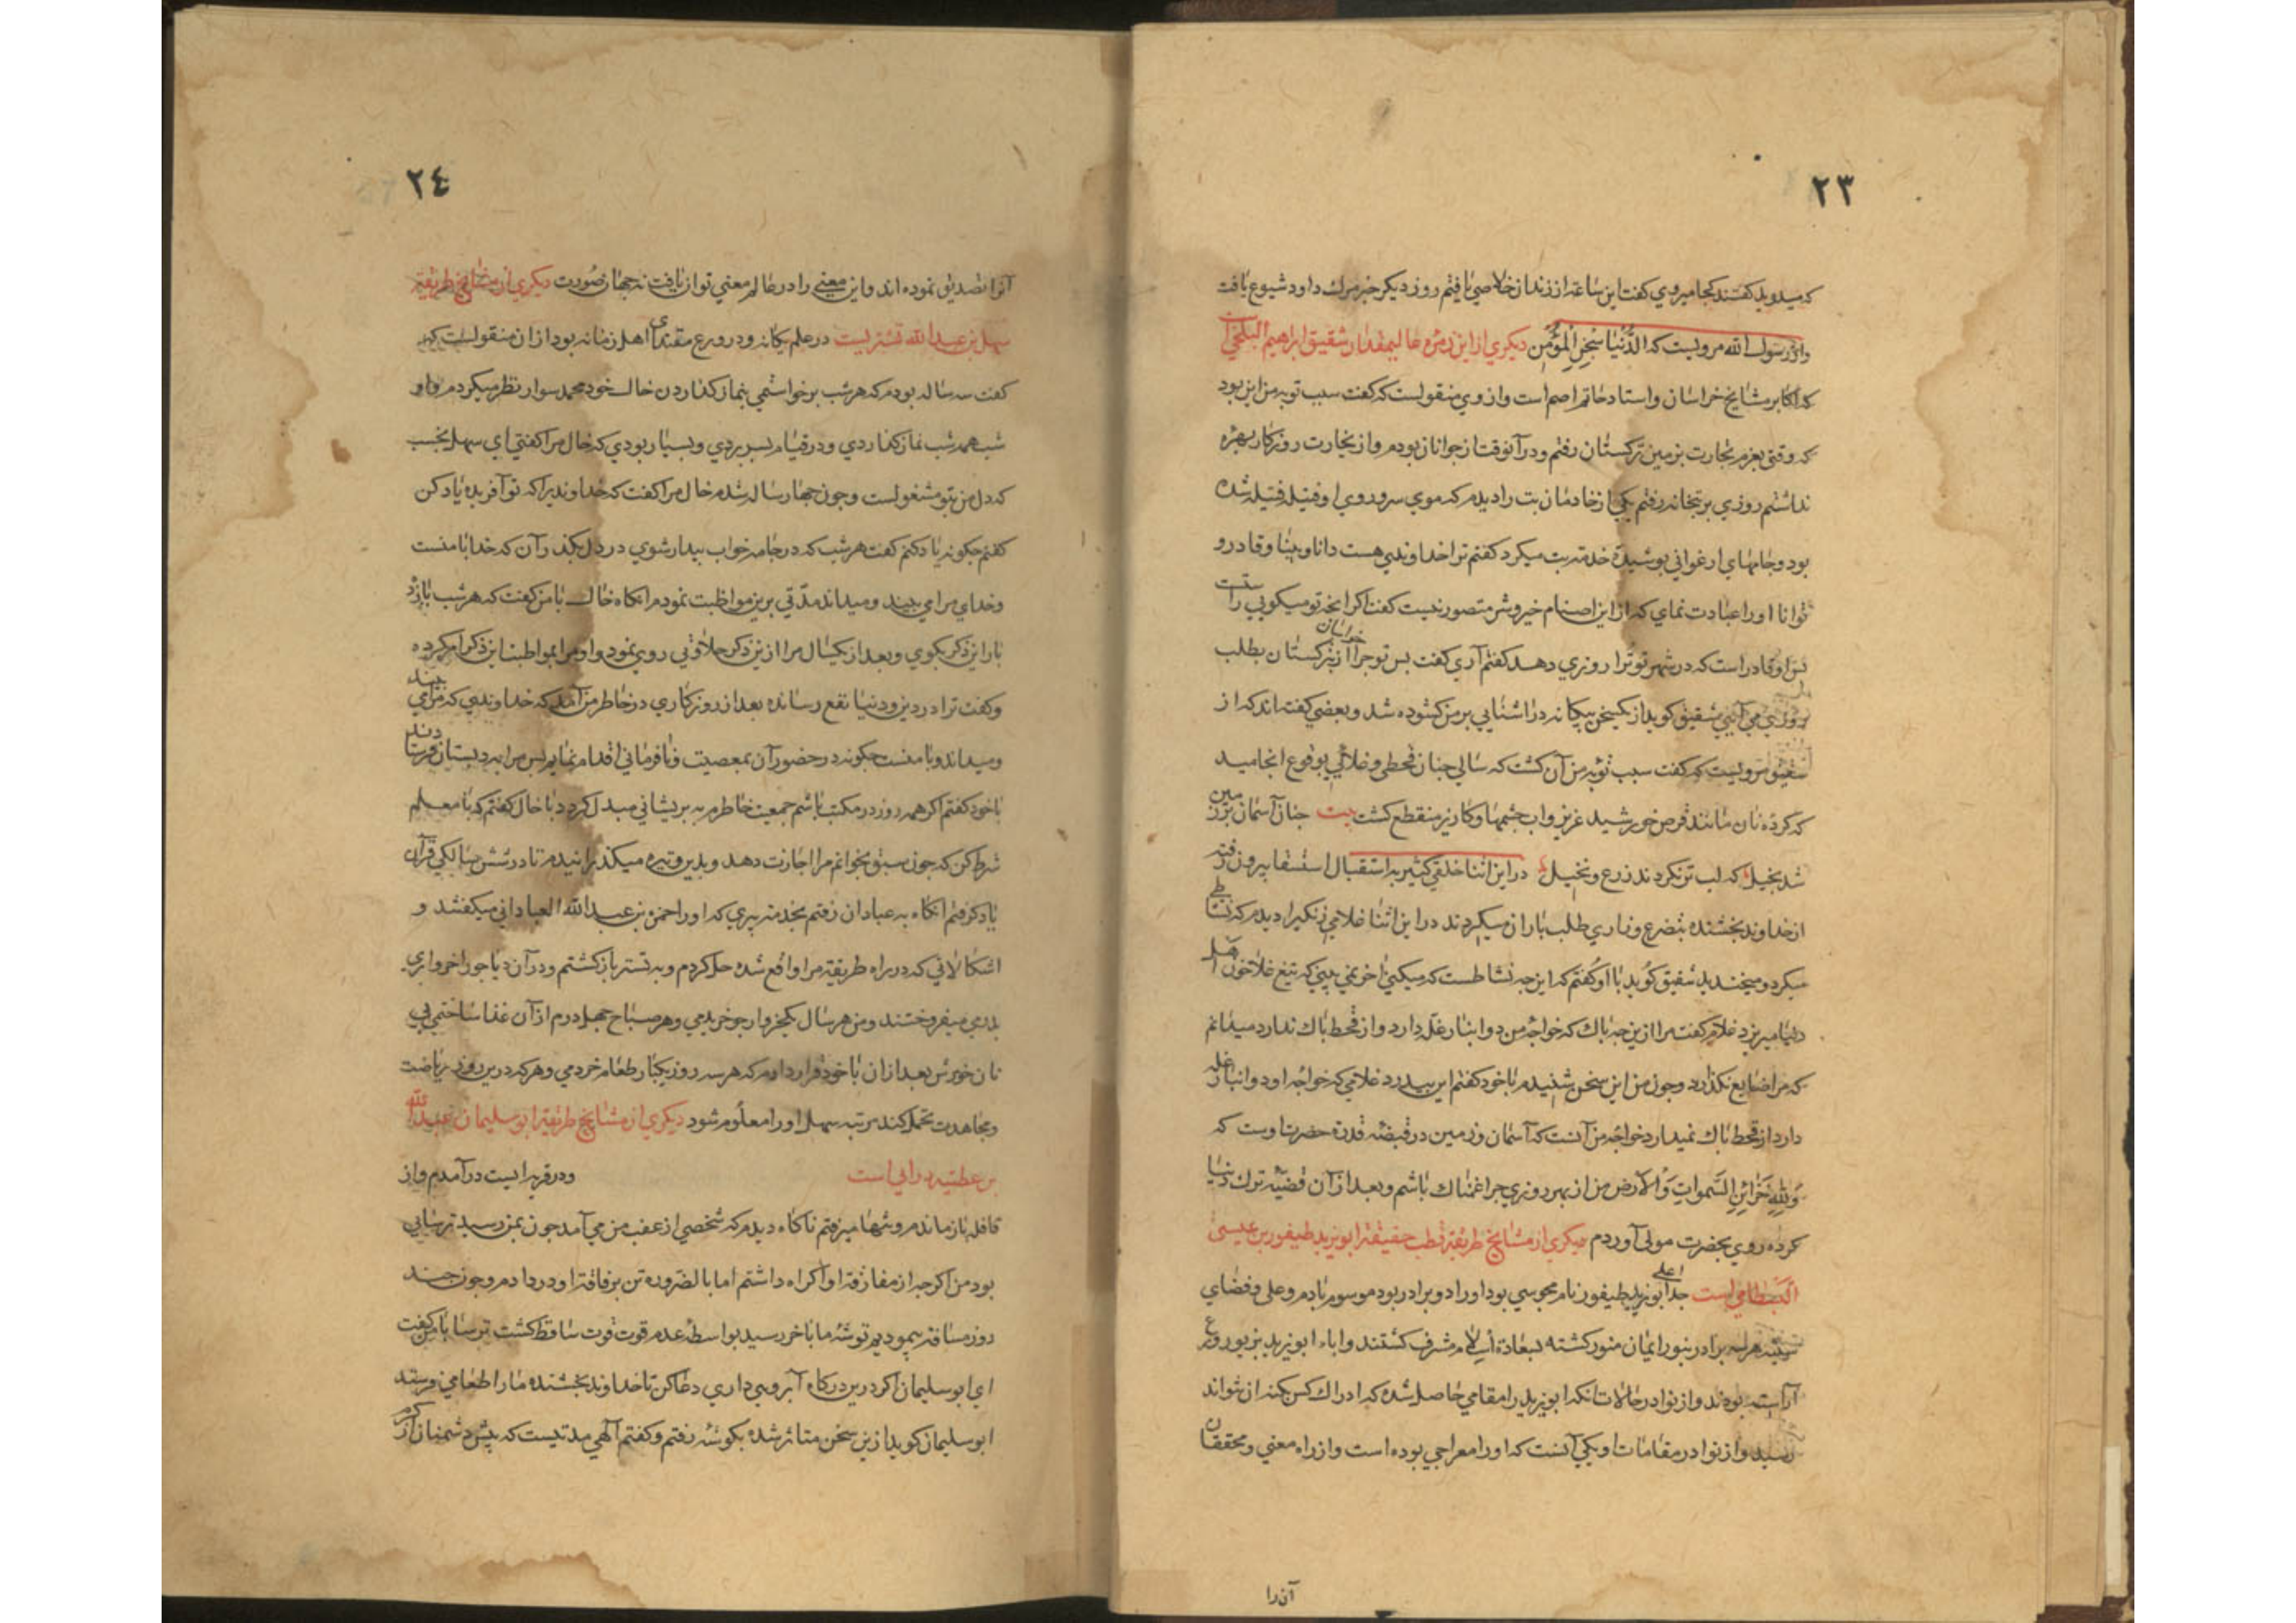 ٢٣
که میدوید گفتند کجا میروی گفت این ساعة از زندان خلاصی یافتم روز دیگر خبر مرك داود شیوع یافت
واز رسول الله مرویست که الدُّنیا سِجْنُ الْمُؤمِن دیکری از این زمره عالیمقدار شقیق ابراهیم البلخی
که اکابر مشایخ خراسان واستاد حاتم اصم است واز وی منقولست که کفت سبب توبه من این بود
که وقتی بعزم تجارت بزمین ترکستان رفتم ودر آنوقت از جوانان بودم واز تجارت روزکار بهره
نداشتم روزی بر بتخانه رفتم یکی از خادمان بت را دیدم که موی سر وروی او فتیله فتیله شده
بود وجامهای ارغوانی پوشیده خدمة بت میکرد کفتم ترا خداوندی هست دانا وبینا وقادر و
توانا اورا عبادت نمای که از این اصنام خیر وشر متصور نیست کفت اکر اینجه تو میکویی راست
پس او قادر است که در شهر تو ترا روزی دهد کفتم آری کفت بس تو چرا از خراسان بترکستان بطلب
روزی می آیی شقیق کوید از یکسخن بیکانه در اشنایی بر من کشوده شد وبعضی کفته اند که از
شقیق مرویست که کفت سبب توبه من آن کشت که سالی جنان قحطی وغلائی بوقوع انجامید
که کرده نان مانند قرص خورشید عزیز واب چشمها وکاریز منقطع کشت بیت جنان آسمان بر زمین
شد بخیل که لب تر نکردند زرع ونخیل در این اثنا خلقی کثیر به استقبال استسقا بیرون رفته
از خداوند بخشنده بتضرع وزاری طلب باران میکردند در این اثنا غلامی زنکی را دیدم که نشاطی
میکرد ومیخندید شقیق کوید با او کفتم که این چه نشاطست که میکنی اخر نمی بینی که تیغ غلا خون اهل
دنیا میریزد غلام کفت مرا ازین جه باك که خواجه من دو انبار غله دارد واز قحط باك ندارد میدانم
که مرا ضایع نکذارد وجون من این سخن شنیدم با خود کفتم ای بیدرد غلامی که خواجه او دو انبار غله
دارد از قحط باك نمیدارد خواجه من آنست که آسمان وزمین در قبضه قدرة حضرت اوست که
وَلِلهِ خَزائِنِ السَّمواتِ وَالاَرض من از بهر روزی چرا غمناك باشم وبعد از آن قضیه ترك دنیا
کرده روی بحضرت مولی آوردم دیکری از مشایخ طریقة قطب حقیقة ابو یزید طیفور بن عیسی
البسطامی است جد اعلی ابو یزید طیفور نام مجوسی بود او را دو برادر بود موسوم بادم وعلی وفضای
سینه هر سه برادر بنور ایمان منور کشته بسعادة اسلام مشرف کشتند واباء ابو یزید بزیور ورع
آراسته بودند واز نوادر حالات انکه ابو یزید را مقامی حاصل شده که ادراك کس بکنه ان نتواند
رسید واز نوادر مقامات او یکی آنست که او را معراجی بوده است واز راه معنی ومحققان
آن را
٢٤
آنرا تصدیق نموده اند واین معنی را در عالم معنی توان یافت نه جهان صورت دیکری از مشایخ طریقة
سهل بن عبد الله تستریست در علم یکانه ودر ورع مقتدای اهل زمانه بود از ان منقولست که
کفت سه ساله بودم که هر شب برخواستمی بنماز کذاردن خال خود محمد سوار نظر میکردم واو
شب همه شب نماز کذاردی ودر قیام بسر بردی وبسیار بودی که خال مرا کفتی ای سهل بخسب
که دل من بتو مشغولست وجون چهار ساله شدم خال مرا کفت که خداوندیرا که تو آفریده یاد کن
کفتم چکونه یاد کنم کفت هر شب که در جامه خواب بیدار شوی در دل بکذران که خدا با منست
وخدای مرا می بیند ومیداند مدّتی برین مواظبت نمودم انکاه خال با من کفت که هر شب یازده
بار این ذکر بکوی وبعد از یکسال مرا ازین ذکر حلاوتی روی نمود واو مرا بمواظبة این ذکر امر کرده
وکفت ترا در دین ودنیا نفع رساند بعد از روزکاری در خاطر من آمد که خداوندی که مرا می بیند
ومیداند وبا منست چکونه در حضور آن بمعصیت ونافرمانی اقدام نمایم پس مرا به دبستان فرستادند
با خود کفتم اکر همه روز در مکتب باشم جمعیت خاطرم به پریشانی مبدل کردد با خال کفتم که با معلم
شرط کن که چون سبق بخوانم مرا اجازت دهد وبدین وتیره میکذرانیدم تا در شش سالکی قرآن
یاد کرفتم انکاه به عبادان رفتم بخدمة پیری که اورا حمزة بن عبد الله العبادانی میکفتند و
اشکالاتی که در راه طریقة مرا واقع شده حل کردم وبه تستر باز کشتم ودر آن دیا جو را خرواری
بدرمی میفروختند ومن هر سال یکخروار جو خریدمی وهر صباح چهل درم از آن غذا ساختمی بی
نان خورش بعد از ان با خود قرار دادم که هر سه روز یکبار طعام خردمی وهر که درین روز ریاضت
ومجاهدت تحمل کند مرتبه سهل او را معلوم شود دیکری از مشایخ طریقة ابو سلیمان عبد الله
بن عطیه دارانی است ودر قریه ایست در آمدم واز
قافله باز ماندم وتنها میرفتم ناکاه دیدم که شخصی از عقب من می آمد چون بمن رسید ترسایی
بود من اکرچه از مفارقة او اکراه داشتم اما بالضروره تن برفاقة او در دادم وجون چند
روز مسافة پیمودیم توشه ما باخر رسید بواسطه عدم قوت قوت ساقط کشت ترسا با من کفت
ای ابو سلیمان اکر درین درکاه آبرویی داری دعا کن تا خداوند بخشنده ما را طعامی فرستد
ابو سلیمان کوید ازین سخن متاثر شده بکوشه رفتم وکفتم الهی مدتیست که پیش دشمنان از کرم